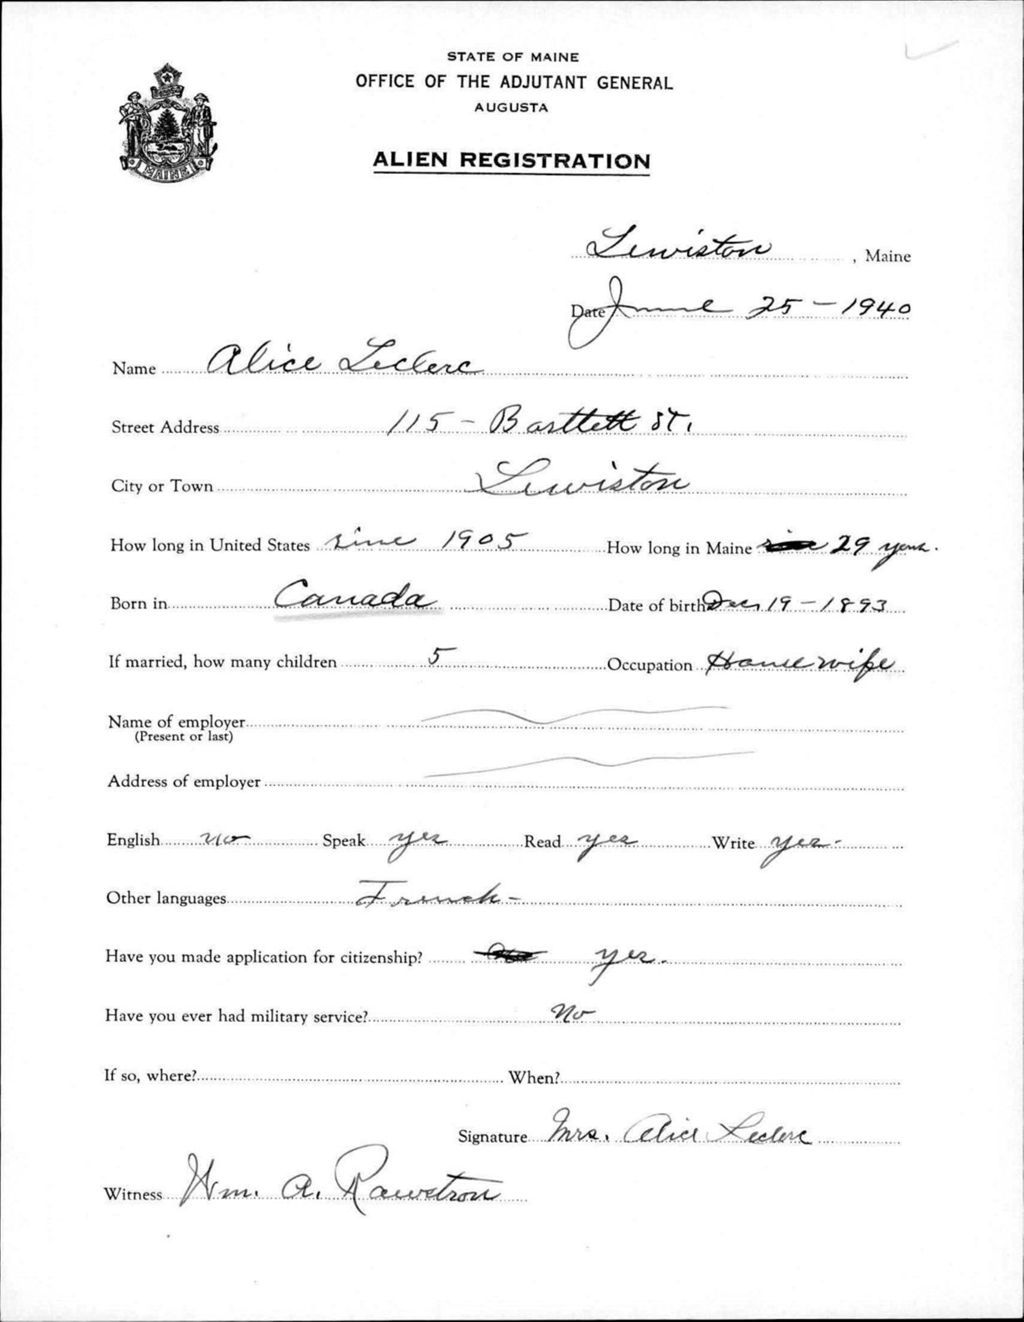 STATE OF MAINE
OFFICE OF THE ADJUTANT GENERAL
AUGUSTA
ALIEN REGISTRATION
MAINE
Lewiston, Maine
Date June 25 - 1940
Name Alice Leclerc
Street Address 115 - Bartlett St.
City or Town Lewiston
How long in United States since 1905 How long in Maine 29 years.
Born in Canada Date of birth Dec, 19 - 1893
If married, how many children 5 Occupation Housewife
Name of employer
(Present or last)
Address of employer
English no Speak yes Read yes Write yes -
Other languages French -
Have you made application for citizenship? yes.
Have you ever had military service? No
If so, where? When?
Signature Mrs. Alice Leclerc
Witness Wm. A. Rawstron